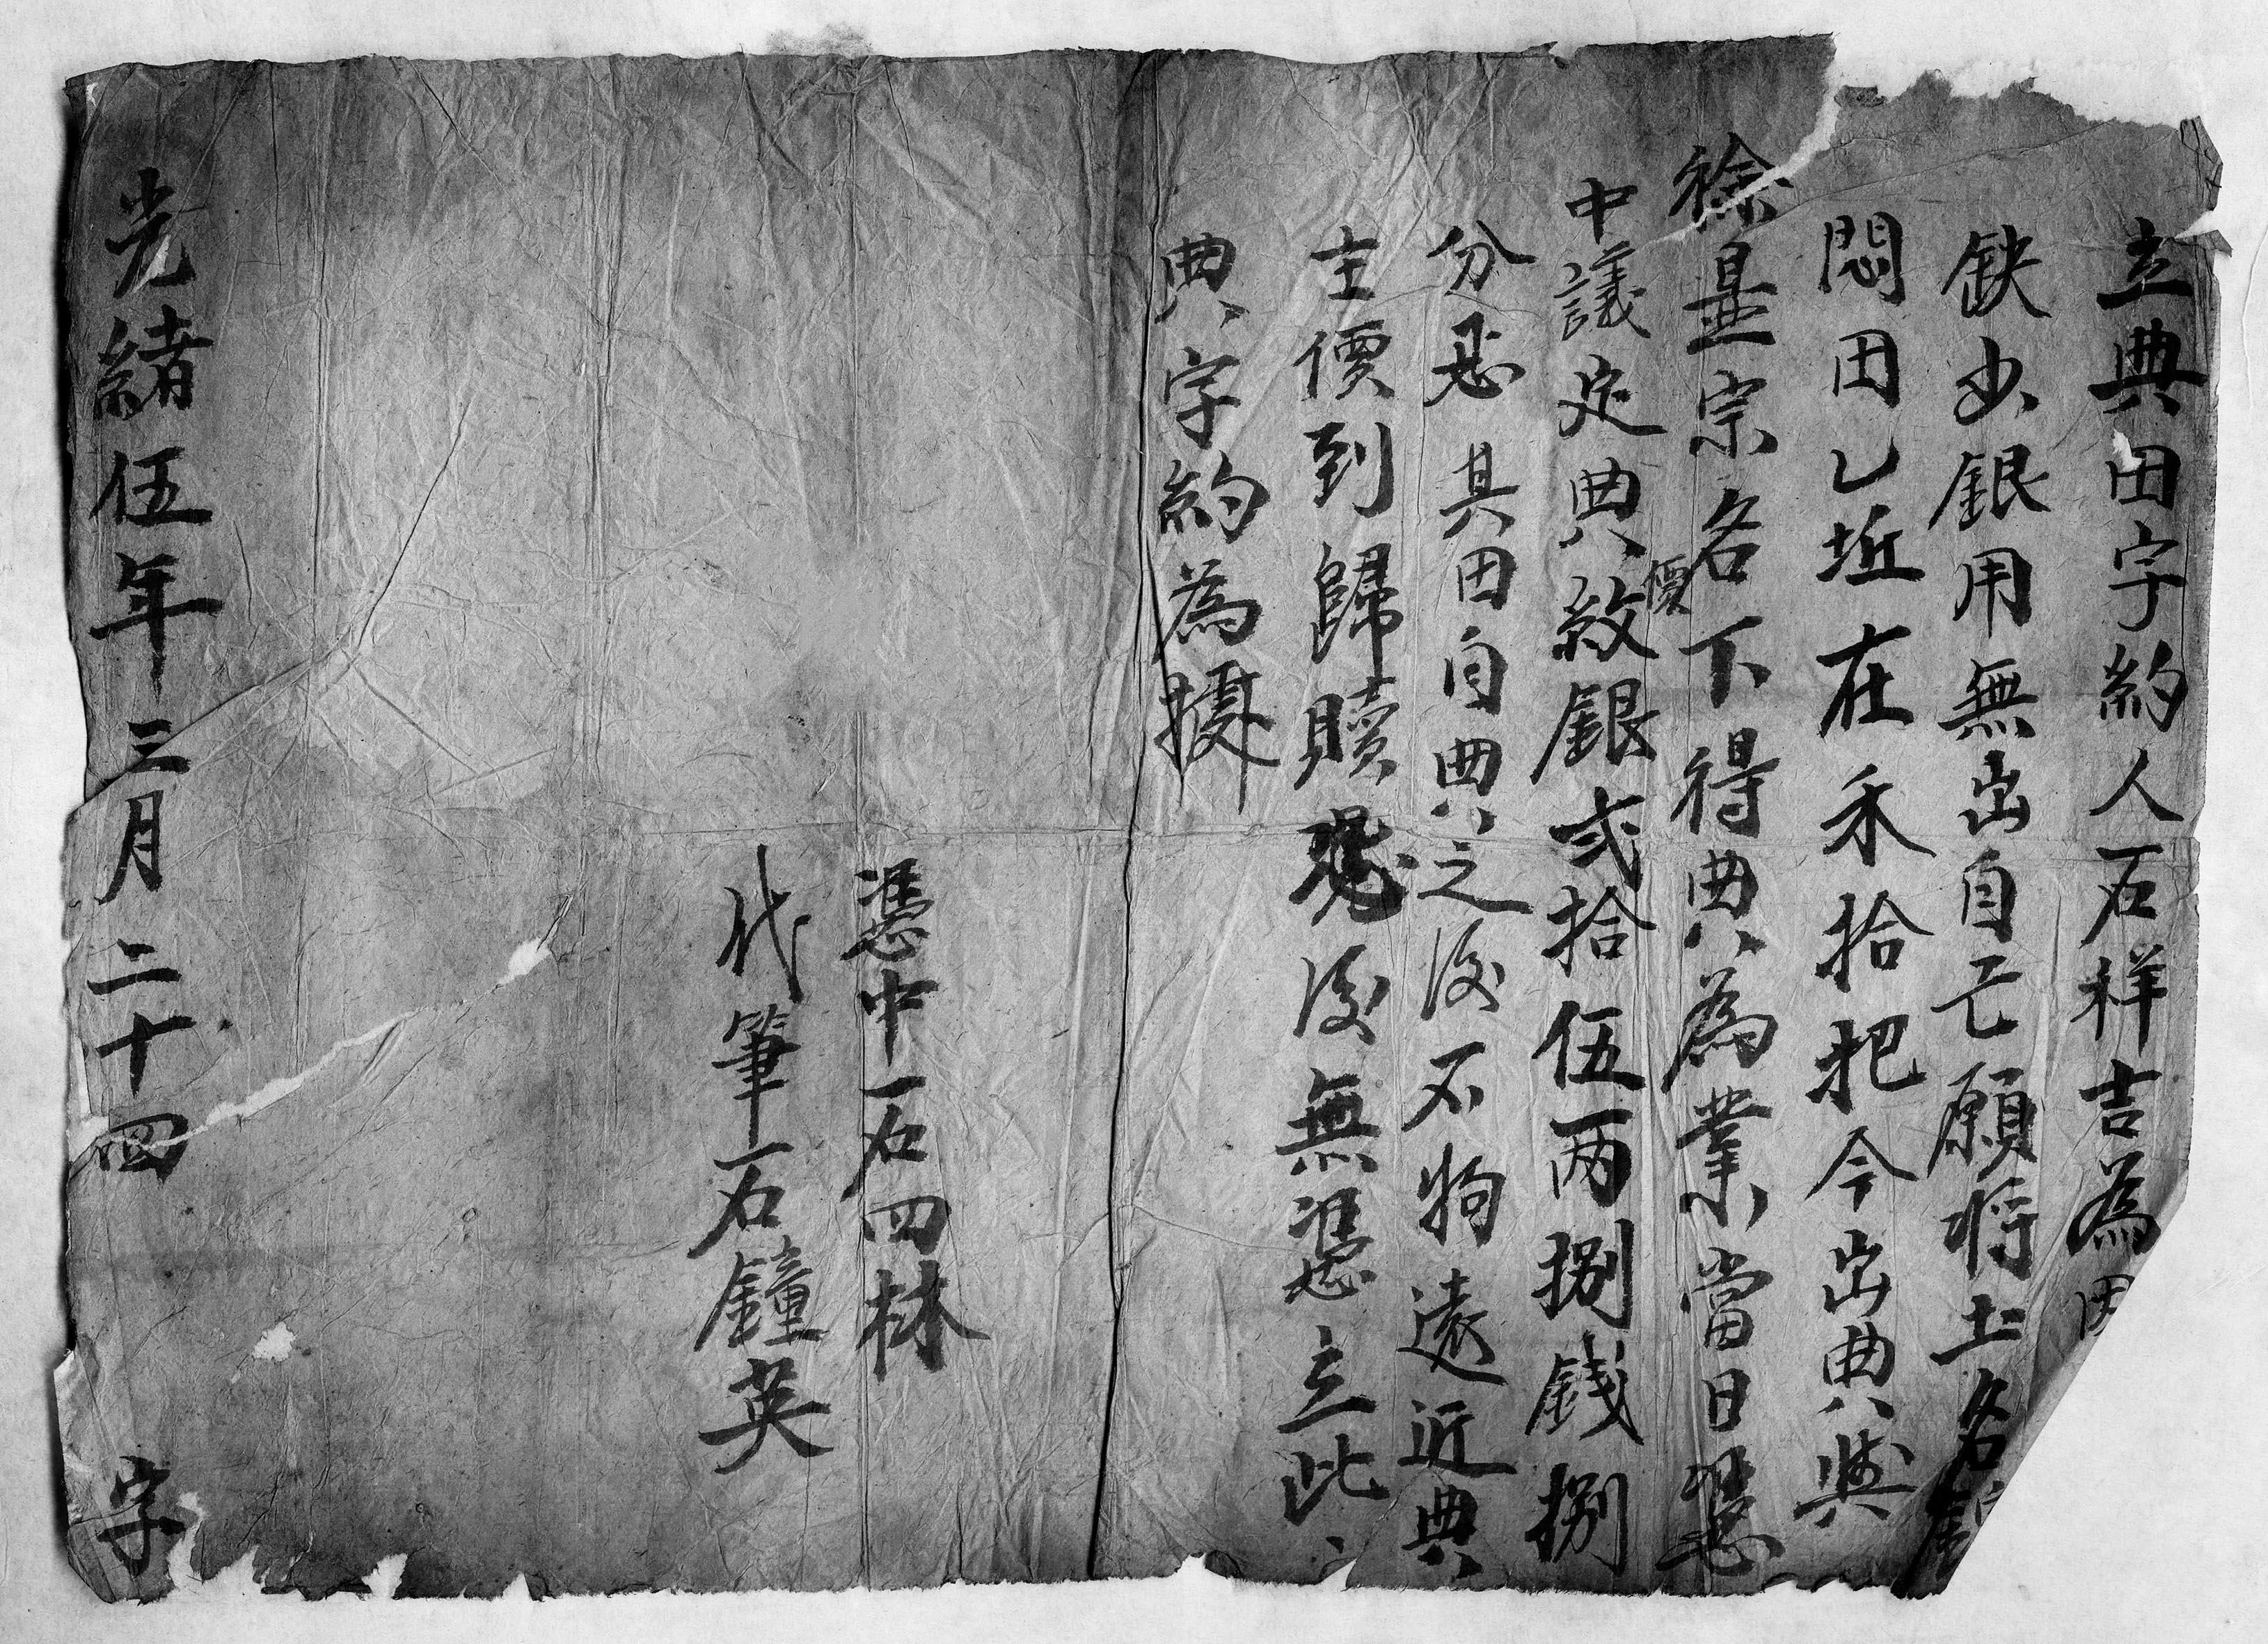 立典田字約人石祥吉為因
缺少銀用無出自己願將土名
悶田乚坵在禾拾把今出典與
徐昰宗名下得典為業當日憑
中議定典價紋銀弍拾伍两捌錢捌
分恳其田自典之後不拘遠近典
主價到歸贖恐後無憑立此
典字約為據
憑中石四林
代筆石鐘英
光緒伍年三月二十四 字